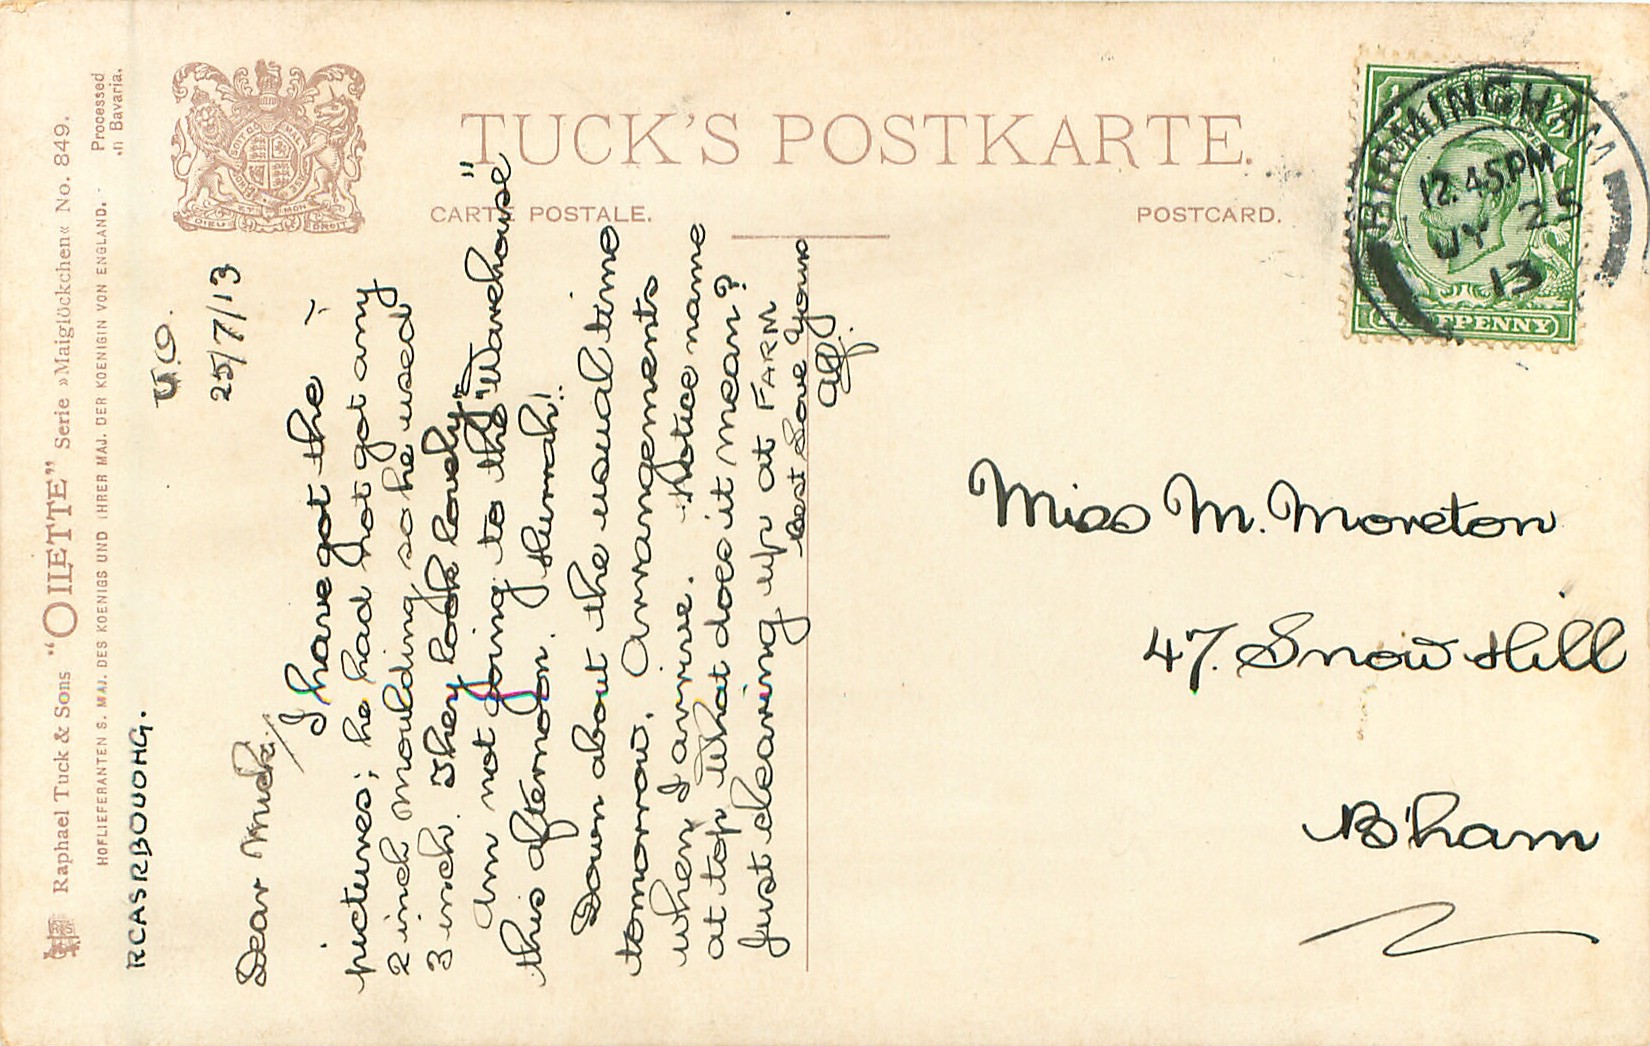 Raphael Tuck & Sons "OILETTE" Serie »Maiglöckchen« No. 849.
HOFLIEFERANTEN S. MAJ. DES KOENIGS UND IHRER MAJ. DER KOENIGIN VON ENGLAND.
Processed
in Bavaria.
TUCK'S POSTKARTE.
CARTE POSTALE.
POSTCARD.
DIEU ET MON DROIT
RCASRBOUOHG.
25/7/13
Dear
I have got the
pictures; he had not got any
2 inch moulding so he used
3 inch. They look lovely"
Am not going to the "Warehouse"
this afternoon. Hurrah!
Down about the usual time
tomorrow. Arrangements
when I arrive. Notice name
at top what does it mean?
Just clearing up at FARM
Best Love Yours
Alf.
BIRMINGHAM
12.45PM
JY 25
13
HALFPENNY
Miss M. Moreton
47. Snow Hill
B'ham